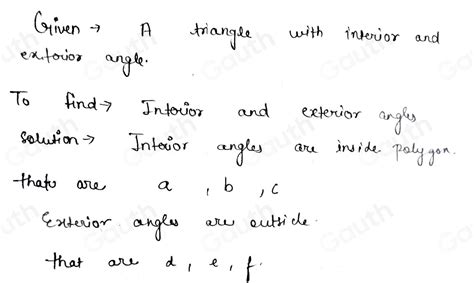 Given → A triangle with interior and
exterior angle.
To find → Interior and exterior angles
solution → Interior angles are inside polygon.
that are a , b , c
Exterior angles are outside.
that are d , e , f.